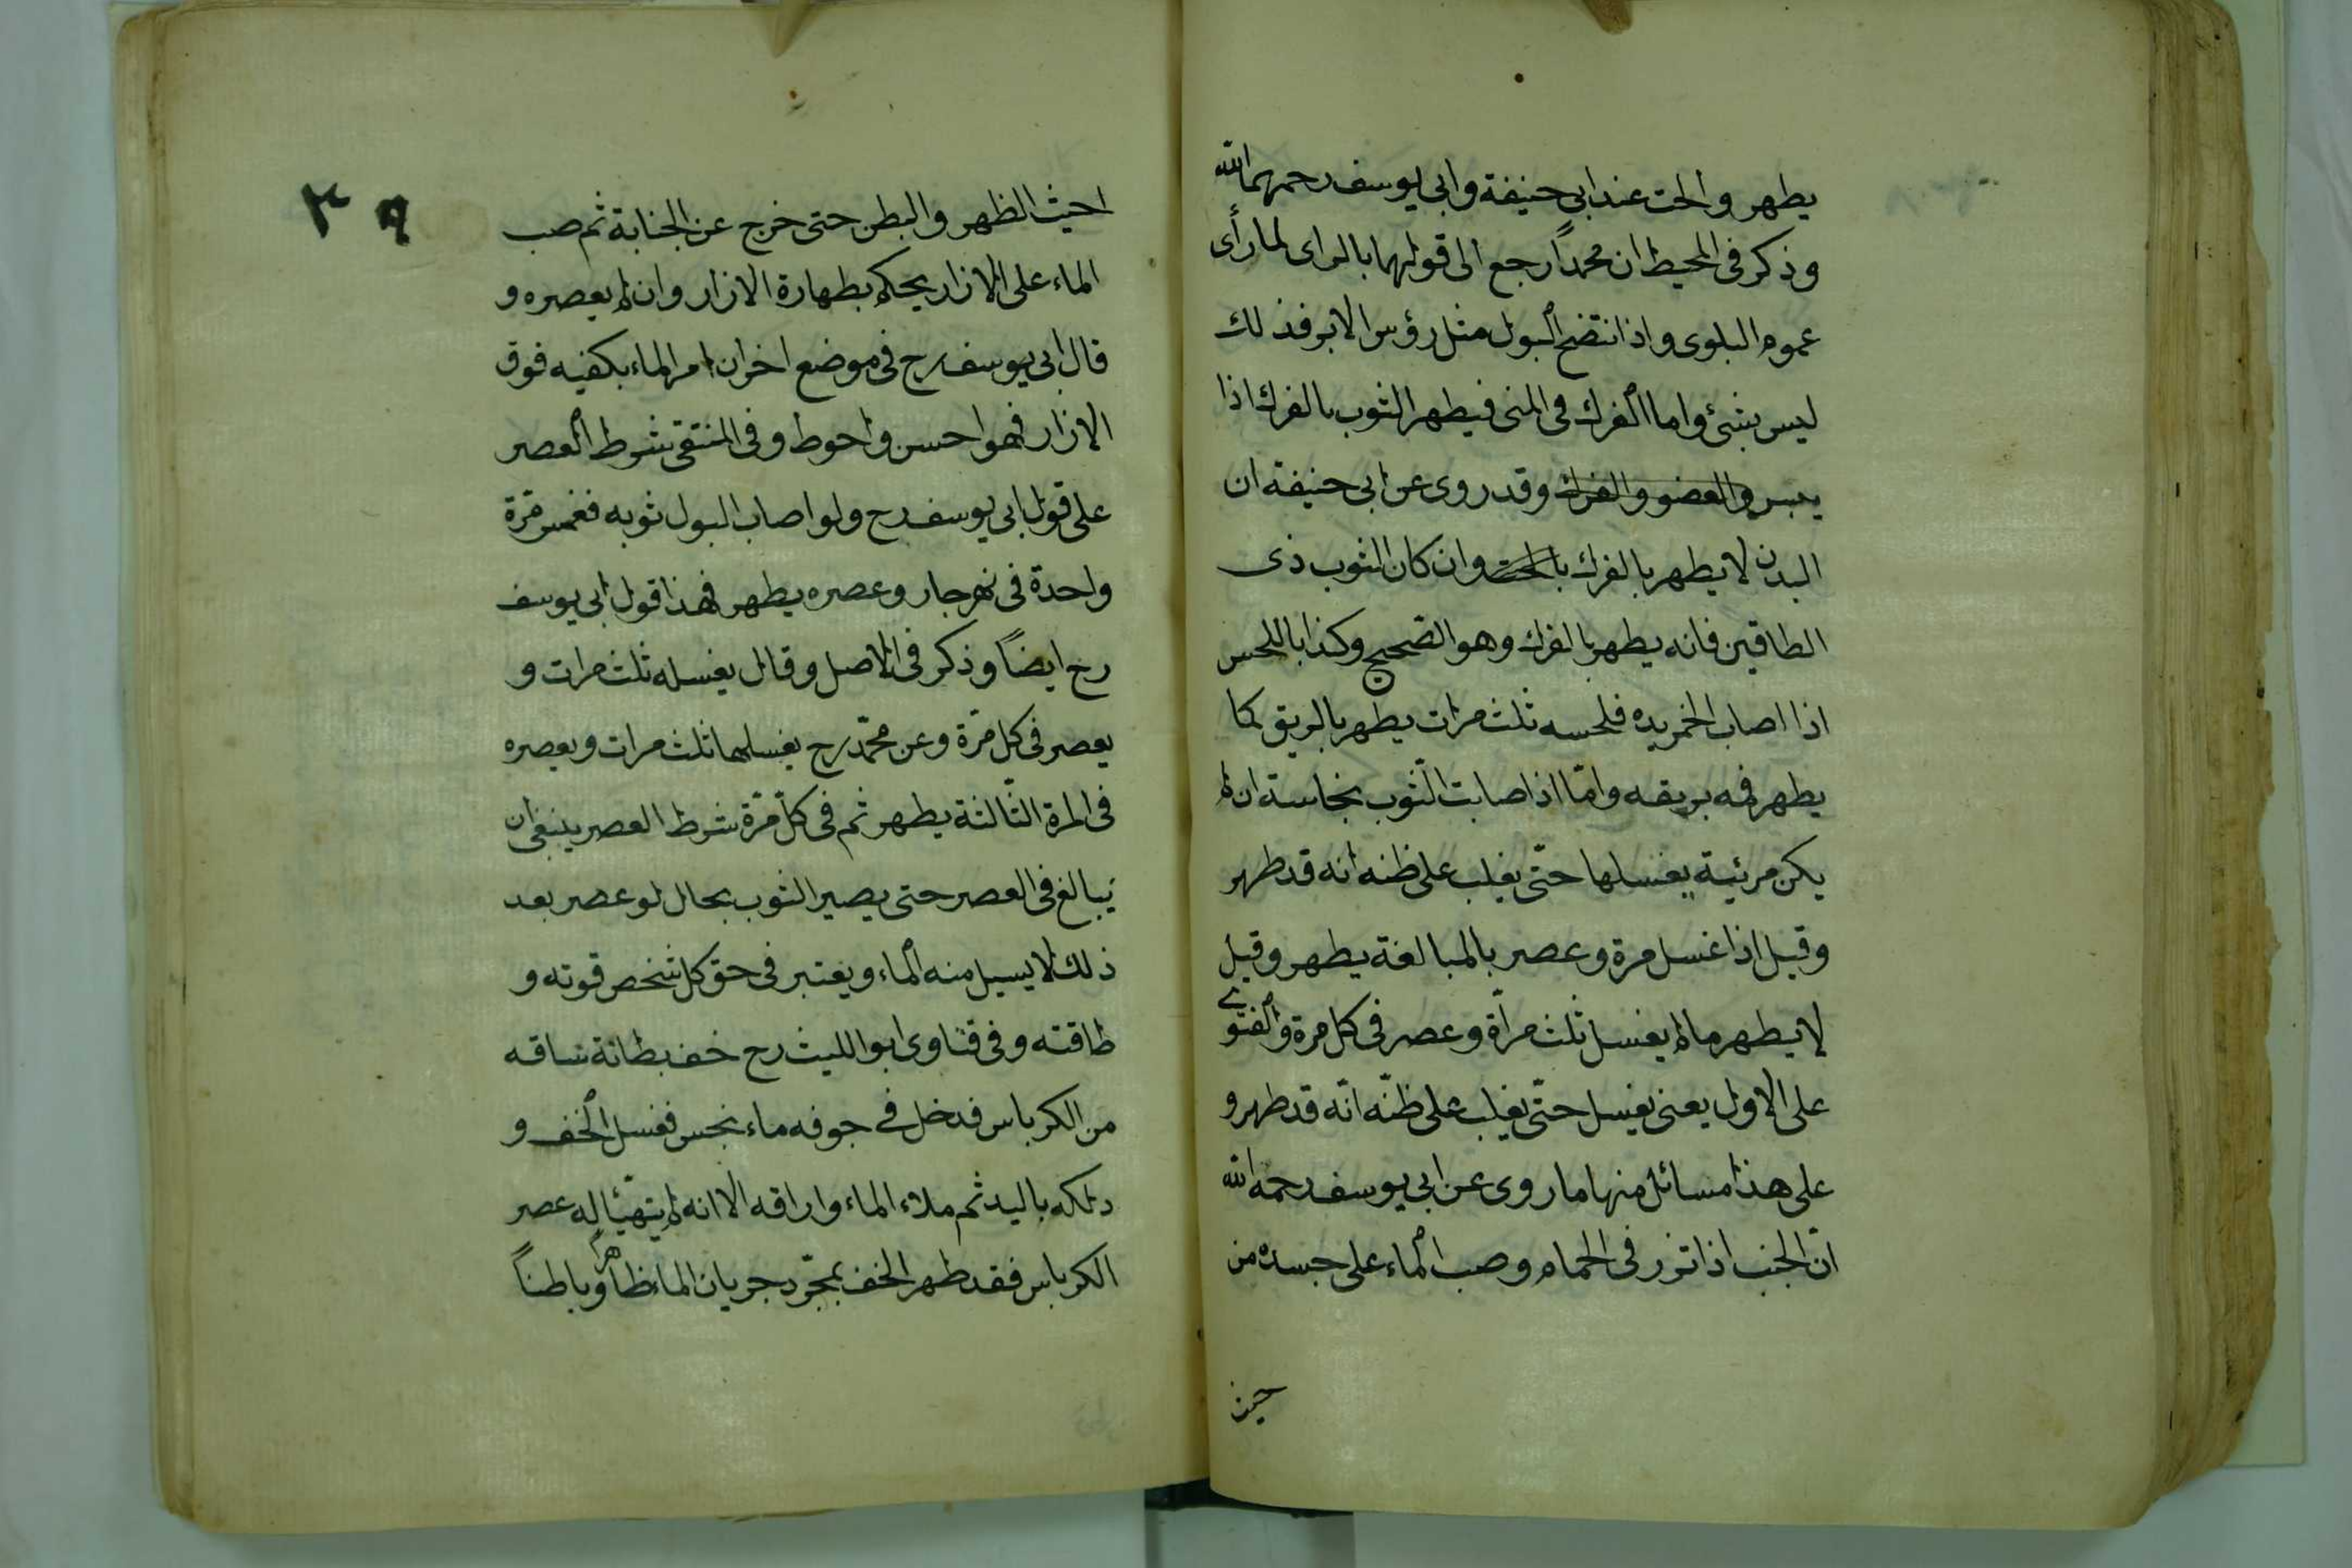 يطهر والحت عند ابي حنيفة وابي يوسف رحمهما الله
وذكر فى المحيط ان محمداً رجع الى قولهما بالراى لما رأى
عموم البلوى واذا انتضح البول مثل رؤس الابر فذلك
ليس بشئ واما الفرك فى المنى فيطهر الثوب بالفرك اذا
يبس والعضو والفرك وقد روى عن ابى حنيفة ان
البدن لا يطهر بالفرك بالحت وان كان الثوب ذى
الطاقين فانه يطهر بالفرك وهو الصحيح وكذا باللحس
اذا اصاب الخمر يده فلحسه ثلث مرات يطهر بالريق كما
يطهر فمه بريقه وامّا اذا صابت الثّوب نجاسة ان لم
يكن مرئية يغسلها حتّى يغلب على ظنه انه قد طهر
وقيل اذا غسل مرة وعصر بالمبالغة يطهر وقيل
لا يطهر مالم يغسل ثلث مراة وعصر فى كل مرة والفتوى
على الاول يعنى يغسل حتّى يغلب على ظنّه انّه قد طهر و
على هذا مسائل منها ما روى عن ابى يوسف رحمه الله
انّ الجنب اذا تزر فى الحمام وصب الماء على جسده من
حيث
احيث الظهر والبطن حتى خرج عن الجنابة ثم صب
الماء على الازار يحكم بطهارة الازار وان لم يعصره و
قال ابى يوسف رح فى موضع اخر ان امر الماء بكفيه فوق
الازار فهو احسن واحوط وفى المنتقى شرط العصر
على قول ابى يوسف رح ولو اصاب البول ثوبه فغمس مرّة
واحدة فى نهر جار وعصره يطهر فهذا قول ابى يوسف
رح ايضاً وذكر فى الاصل وقال يغسله ثلث مرات و
يعصر فى كل مرّة وعن محمّد رح يغسلها ثلث مرات ويعصره
فى المرة الثّالثة يطهر ثم فى كلّ مرّة شرط العصر ينبغى ان
يبالغ فى العصر حتى يصير الثوب بحال لو عصر بعد
ذلك لا يسيل منه الماء ويعتبر فى حق كل شخص قوته و
طاقته وفى فتاوى ابو الليث رح خف بطانة ساقه
من الكرباس فدخل فى جوفه ماء نجس فغسل الخف و
دلكه باليد ثم ملاء الماء واراقه الا انه لم يتهيّأ له عصر
الكرباس فقد طهر الخف بمجرّد جريان الماء ظاهراً وباطناً